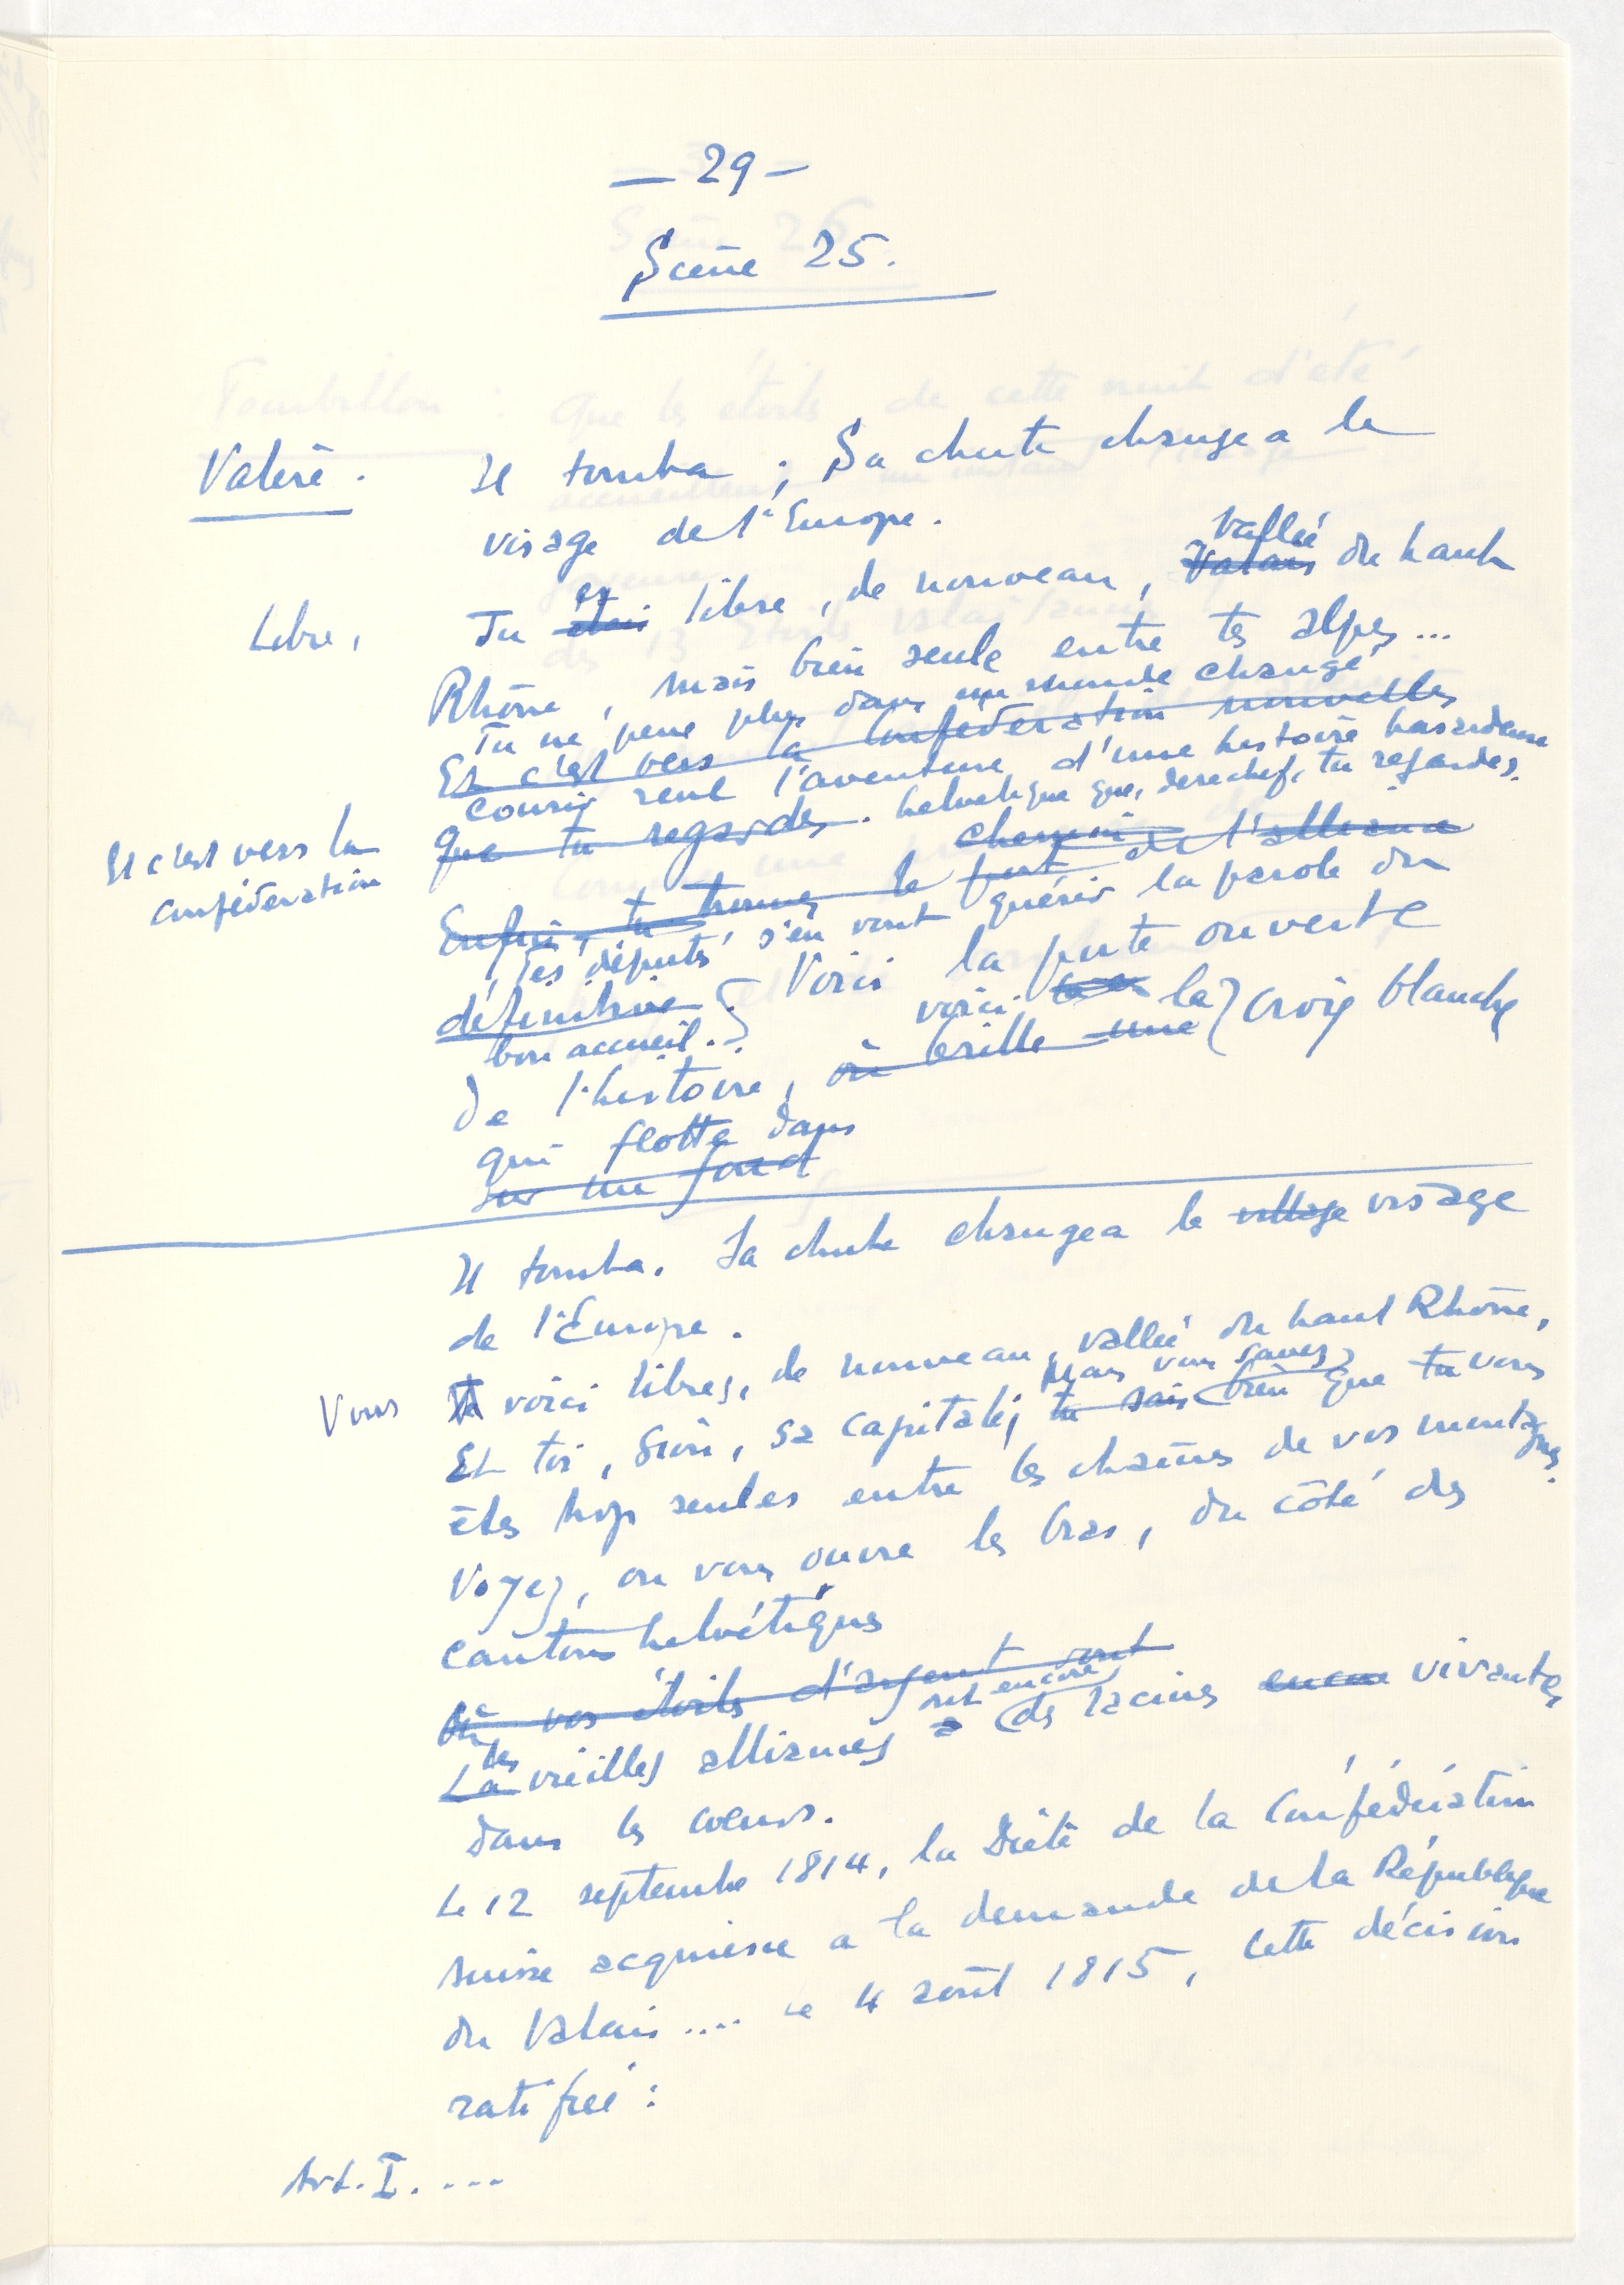 — 29 —
Scène 25.
Valère. Il tomba ; Sa chute changea le
visage de l'Europe.
vallée
Libre, Tu étais es libre, de nouveau, Valais du haut
Rhône, mais bien seule entre tes alpes...
Tu ne peux plus dans un monde changé
Et c'est vers la Confédération nouvelle
courir seul l'aventure d'une histoire hasardeuse
Et c'est vers la
confédération
que tu regardes. helvétique que, derechef, tu regardes.
chemin
Enfin, tu trouves le port de l'alliance
Tes députés s'en vont quérir la parole du
définitive. Voici la porte ouverte
bon accueil.
voici la croix blanche
de l'histoire, où brille une
qui flotte dans
sur un fond
Il tomba. Sa chute changea le village visage
de l'Europe.
Vous voici libres, de nouveau, vallée du haut Rhône,
mais vous savez
Et toi, Sion, sa capitale, tu sais bien que tu vous
êtes trop seules entre les chaînes de vos montagnes.
Voyez, on vous ouvre les bras, du côté des
cantons helvétiques
Où vos étoiles d'argent sont
ont encore
La les vieilles alliances a des racines encore vivantes
dans les cœurs.
Le 12 septembre 1814, la Diète de la Confédération
suisse acquiesce a la demande de la République
du Valais .... Le 4 août 1815, cette décision
ratifiée :
Art. I. ....